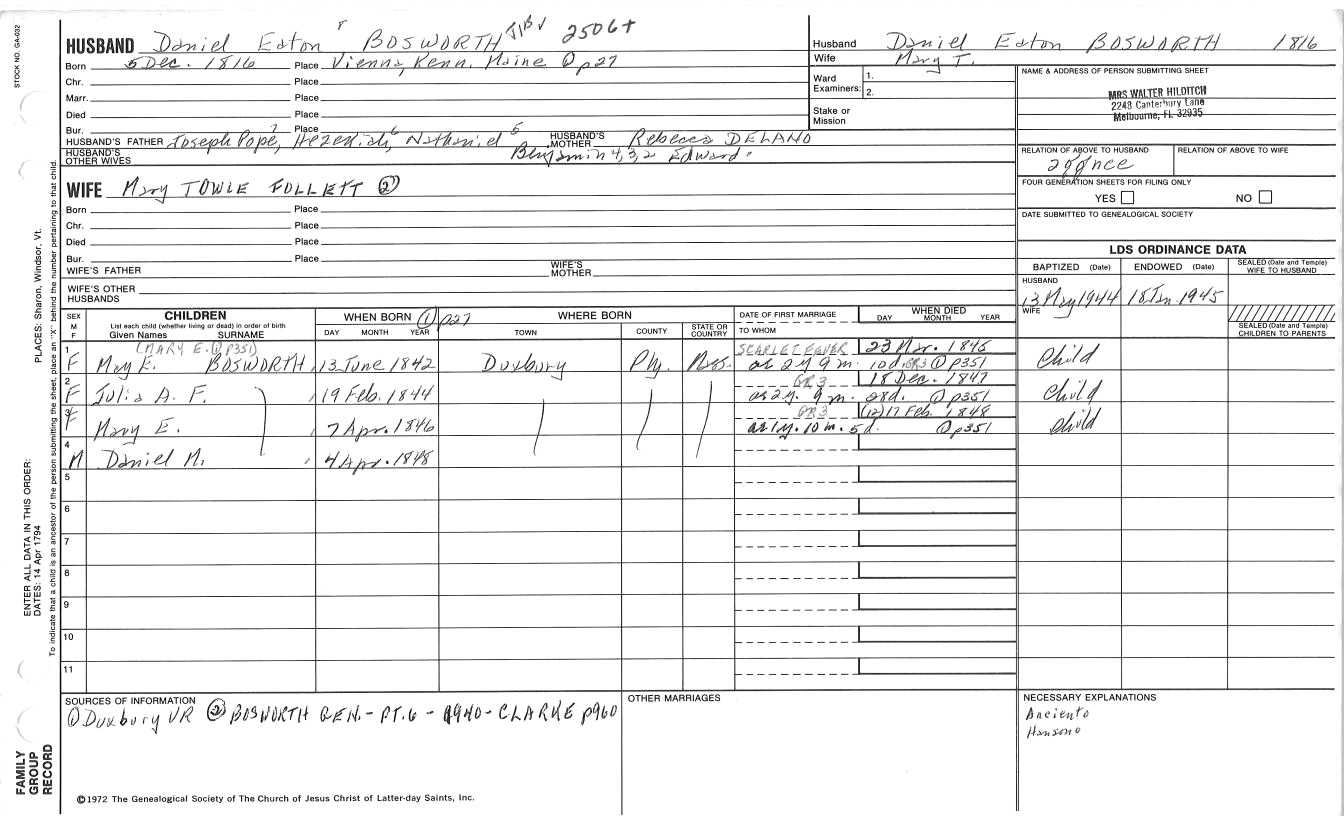 STOCK NO. GA-032
HUSBAND Daniel Eaton BOSWORTH 2506+
Born 5 Dec. 1816 Place Vienna, Kenn. Maine ① p27
Chr. Place
Marr. Place
Died Place
Bur. Place
HUSBAND'S FATHER Joseph Pope, 7 Hezekiah, 6 Nathaniel 5 HUSBAND'S MOTHER Rebecca DELANO
HUSBAND'S OTHER WIVES Benjamin 4, 3, 2 Edward
WIFE Mary TOWLE FOLLETT ②
Born Place
Chr. Place
Died Place
Bur. Place
WIFE'S FATHER WIFE'S MOTHER
WIFE'S OTHER HUSBANDS
Husband Daniel Eaton BOSWORTH 1816
Wife Mary T.
Ward Examiners: 1.
2.
Stake or Mission
NAME & ADDRESS OF PERSON SUBMITTING SHEET
MRS WALTER HILDITCH
2248 Canterbury Lane
Melbourne, FL 32935
RELATION OF ABOVE TO HUSBAND RELATION OF ABOVE TO WIFE
FOUR GENERATION SHEETS FOR FILING ONLY
YES NO
DATE SUBMITTED TO GENEALOGICAL SOCIETY
LDS ORDINANCE DATA
BAPTIZED (Date) ENDOWED (Date) SEALED (Date and Temple) WIFE TO HUSBAND
HUSBAND
13 May 1944 18 Jan. 1945
WIFE
SEALED (Date and Temple) CHILDREN TO PARENTS
SEX M F
CHILDREN
List each child (whether living or dead) in order of birth
Given Names SURNAME
WHEN BORN ① p27
DAY MONTH YEAR
WHERE BORN
TOWN COUNTY STATE OR COUNTRY
DATE OF FIRST MARRIAGE
TO WHOM
WHEN DIED
DAY MONTH YEAR
(MARY E. ① p351) SCARLET FEVER 23 Mar. 1845
1 F Mary E. BOSWORTH 13 June 1842 Duxbury Ply. Mas. as 2y 9m. 10d. GR3 ① p351 Child
GR3 18 Dec. 1847
2 F Julia A. F. 19 Feb. 1844 as 2y. 9m. 28d. ① p351 Child
GR3 (12) 17 Feb. 1848
3 F Mary E. 7 Apr. 1846 as 1y. 10m. 5d. ① p351 Child
4 M Daniel M. 4 Apr. 1848
5
6
7
8
9
10
11
SOURCES OF INFORMATION
① Duxbury VR ② BOSWORTH GEN.- PT.6 - 1940- CLARKE p960
OTHER MARRIAGES
NECESSARY EXPLANATIONS
Anciento
Hansono
©1972 The Genealogical Society of The Church of Jesus Christ of Latter-day Saints, Inc.
PLACES: Sharon, Windsor, Vt.
ENTER ALL DATA IN THIS ORDER:
DATES: 14 Apr 1794
To indicate that a child is an ancestor of the person submitting the sheet, place an "X" behind the number pertaining to that child.
FAMILY GROUP RECORD